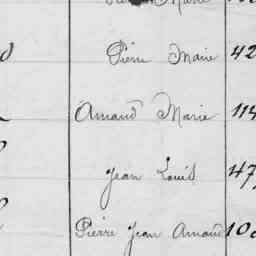 Pierre Marie 42
Amand Marie 114
Jean Louis 47
Pierre Jean Amand 10